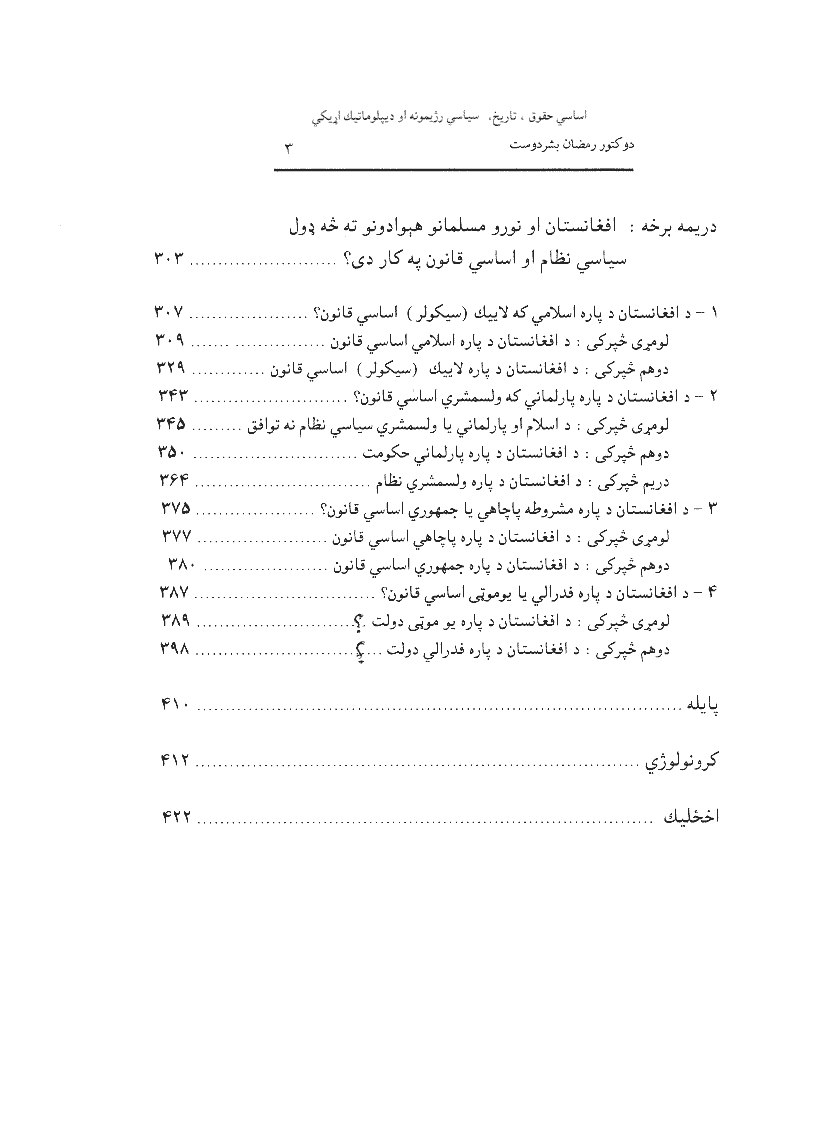 اساسي حقوق ، تاريخ، سياسي رژيمونه او ديپلوماتيك اړيكي
دوكتور رمضان بشردوست ۳
دريمه برخه : افغانستان او نورو مسلمانو هېوادونو ته څه ډول
سياسي نظام او اساسي قانون په كار دى؟ ......................... ۳۰۳
۱ – د افغانستان د پاره اسلامي كه لاييك (سيكولر ) اساسي قانون؟ ..................... ۳۰۷
لومړى څپركى : د افغانستان د پاره اسلامي اساسي قانون ................ ....... ۳۰۹
دوهم څپركى : د افغانستان د پاره لاييك (سيكولر ) اساسي قانون ............. ۳۲۹
۲ – د افغانستان د پاره پارلماني كه ولسمشري اساسي قانون؟ ........................... ۳۴۳
لومړى څپركى : د اسلام او پارلماني يا ولسمشري سياسي نظام نه توافق ......... ۳۴۵
دوهم څپركى : د افغانستان د پاره پارلماني حكومت ............................. ۳۵۰
دريم څپركى : د افغانستان د پاره ولسمشري نظام ............................... ۳۶۴
۳ – د افغانستان د پاره مشروطه پاچاهي يا جمهوري اساسي قانون؟ ..................... ۳۷۵
لومړى څپركى : د افغانستان د پاره پاچاهي اساسي قانون ....................... ۳۷۷
دوهم څپركى : د افغانستان د پاره جمهوري اساسي قانون ...................... ۳۸۰
۴ – د افغانستان د پاره فدرالي يا يوموټى اساسي قانون؟ ................................ ۳۸۷
لومړى څپركى : د افغانستان د پاره يو موټى دولت ؟............................. ۳۸۹
دوهم څپركى : د افغانستان د پاره فدرالي دولت ....؟............................ ۳۹۸
پايله ..................................................................................... ۴۱۰
كرونولوژي .............................................................................. ۴۱۲
اخځليك ................................................................................ ۴۲۲